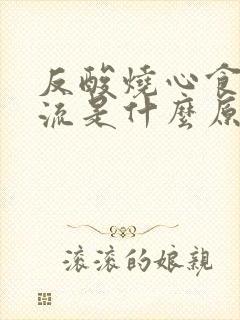 反酸燒心食
流是什麼原
滾滾的娘親